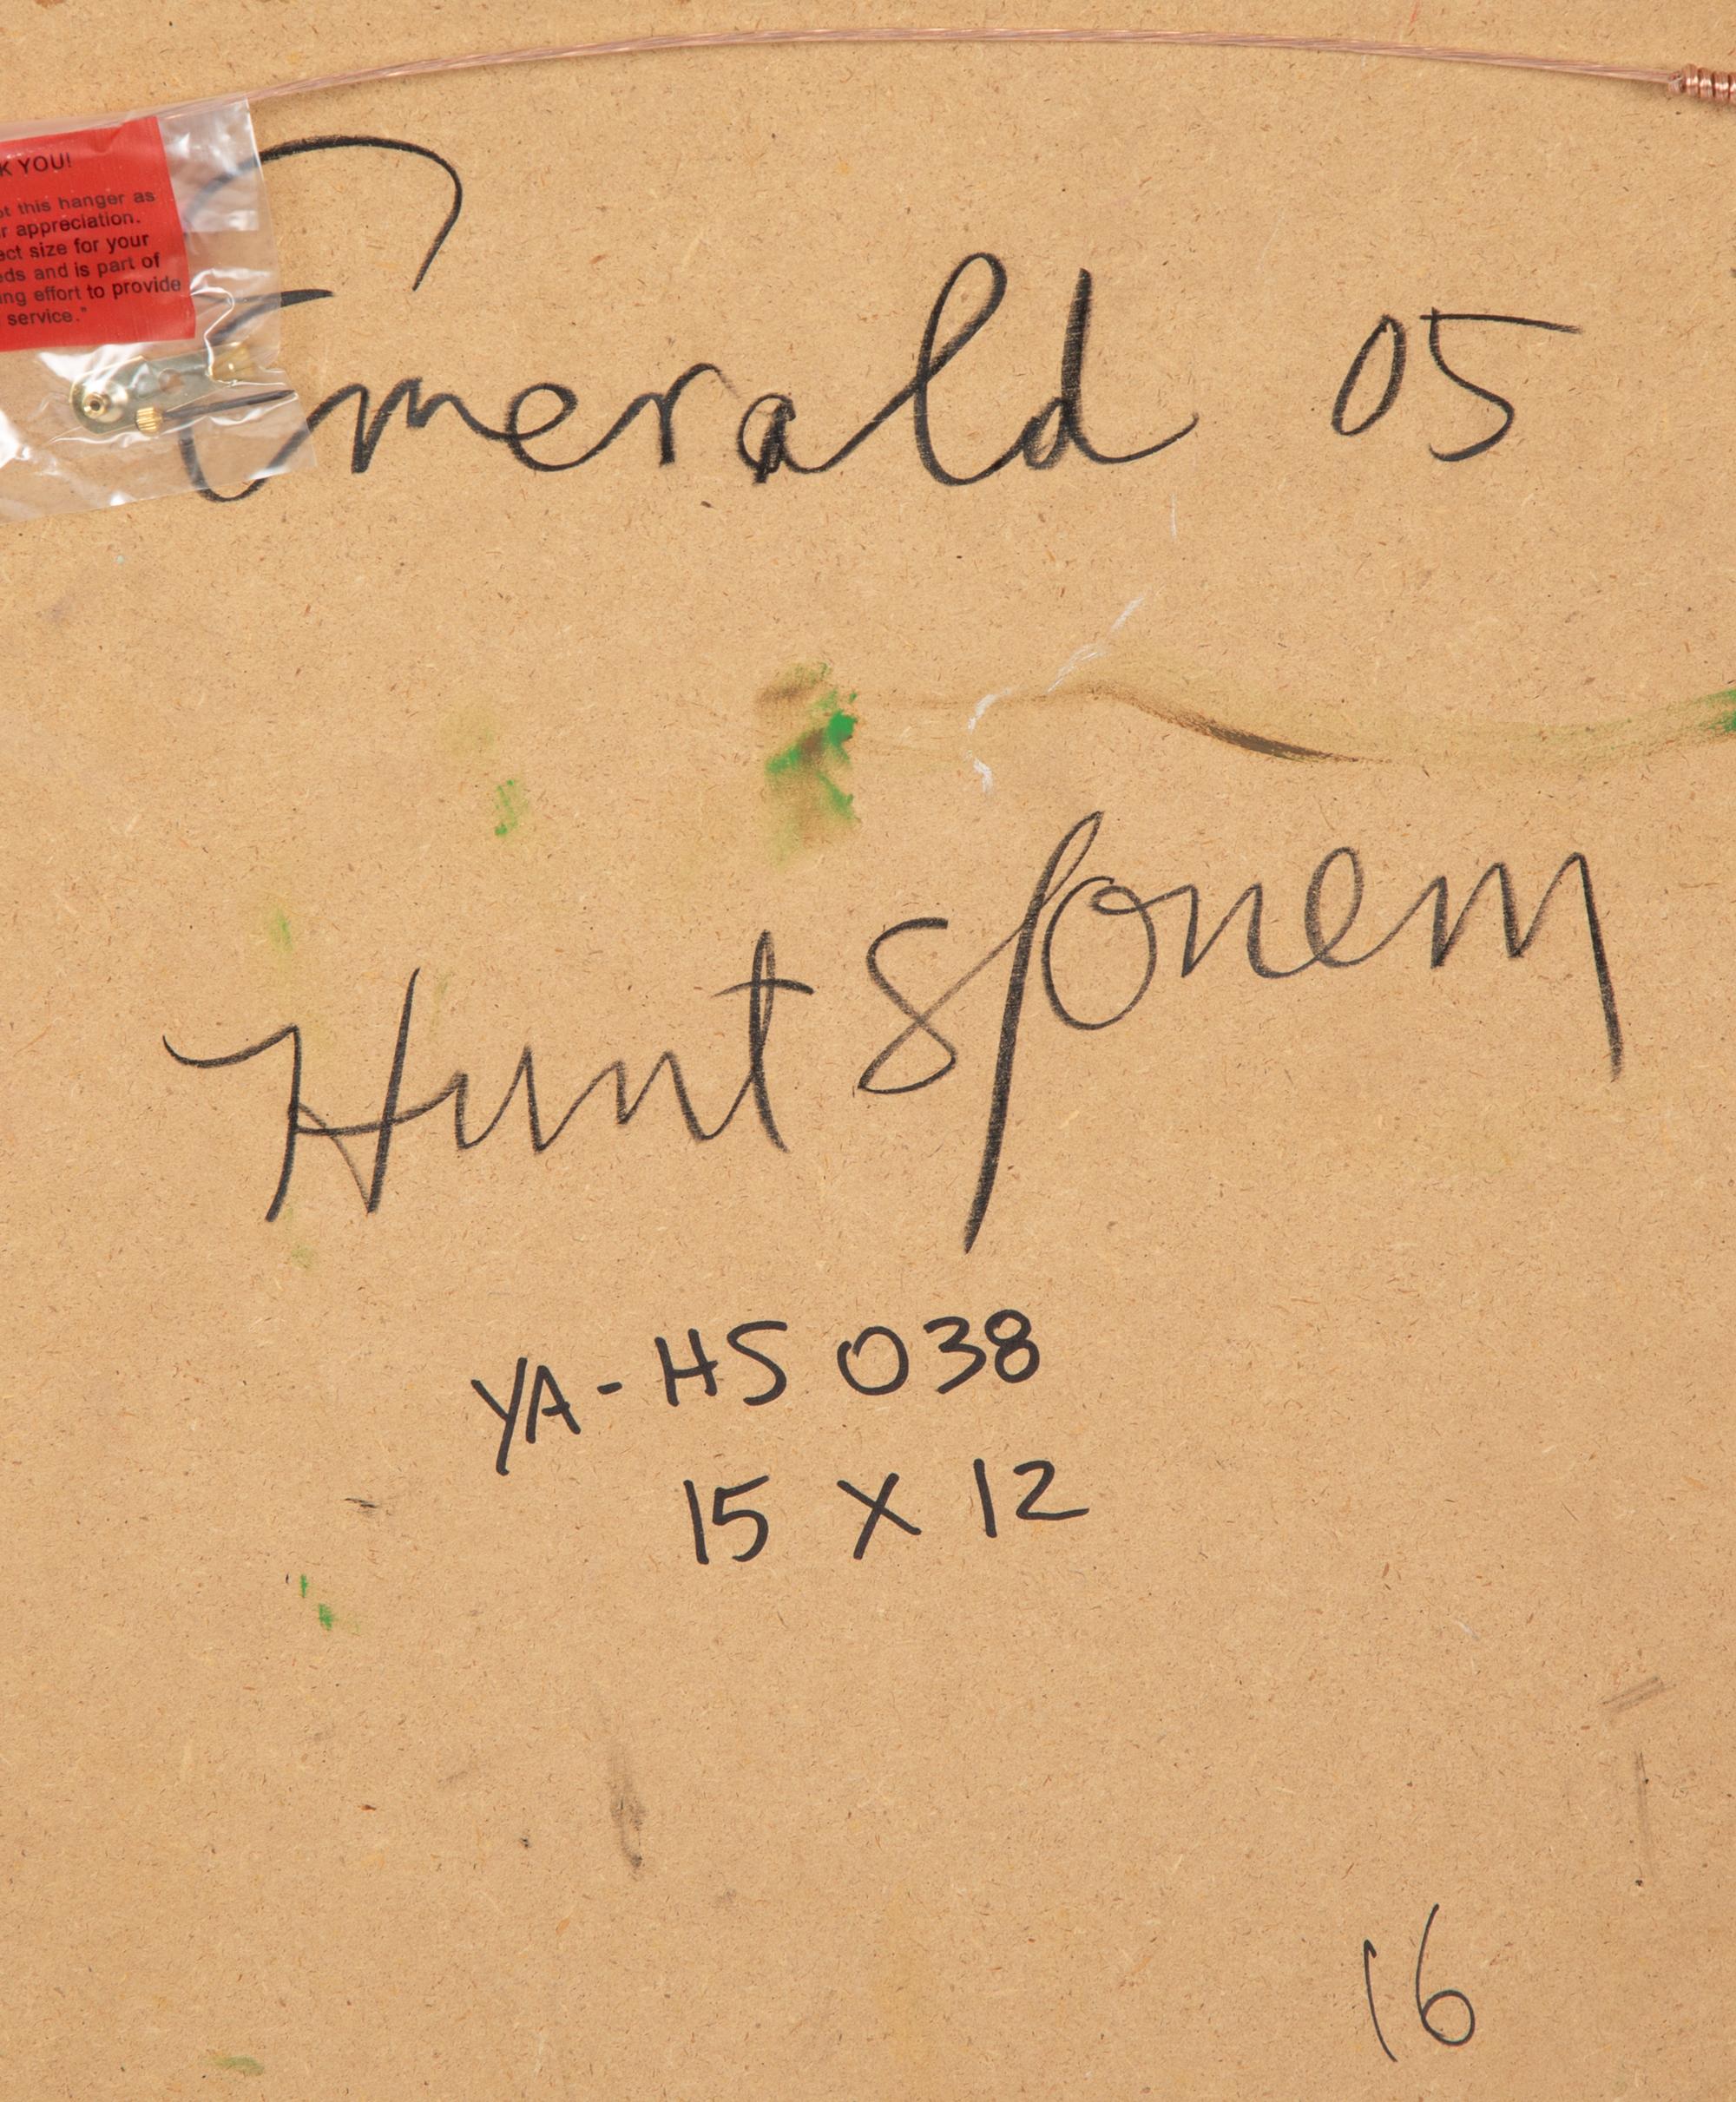 K YOU!
this hanger as
appreciation.
size for your
and is part of
effort to provide
service."
Emerald 05
Hunt Slonem
YA-HS 038
15 X 12
16